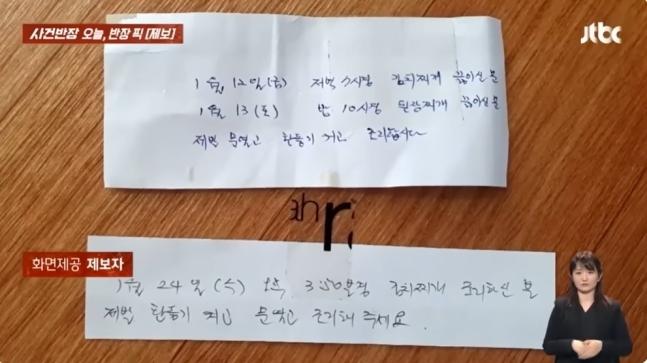 사건반장 오늘, 반장 픽 [제보]
jtbc
1월 12일(금) 저녁 7시경 김치찌개 끓이신 분
1월 13(토) 밤 10시경 된장찌개 끓이신 분
제발 문열고 환풍기 켜고 조리합시다
화면제공 제보자
1월 24일 (수) 오후 3:50분경 김치찌개 조리하신 분
제발 환풍기 켜고 문열고 조리해 주세요.